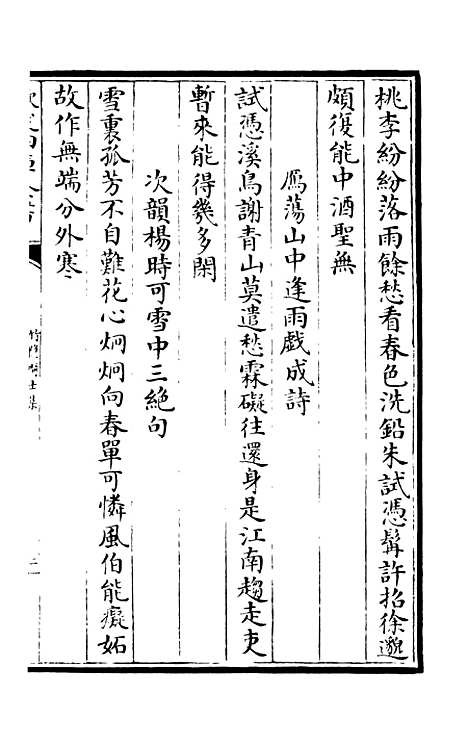 桃李紛紛落雨餘愁看春色洗鉛朱試憑髯許招徐邈
頗復能中酒聖無
鴈蕩山中逢雨戯成詩
試憑溪鳥謝青山莫遣愁霖礙往還身是江南趨走吏
暫來能得幾多閑
次韻楊時可雪中三絶句
雪裏孤芳不自難花心炯炯向春單可憐風伯能癡妬
故作無端分外寒